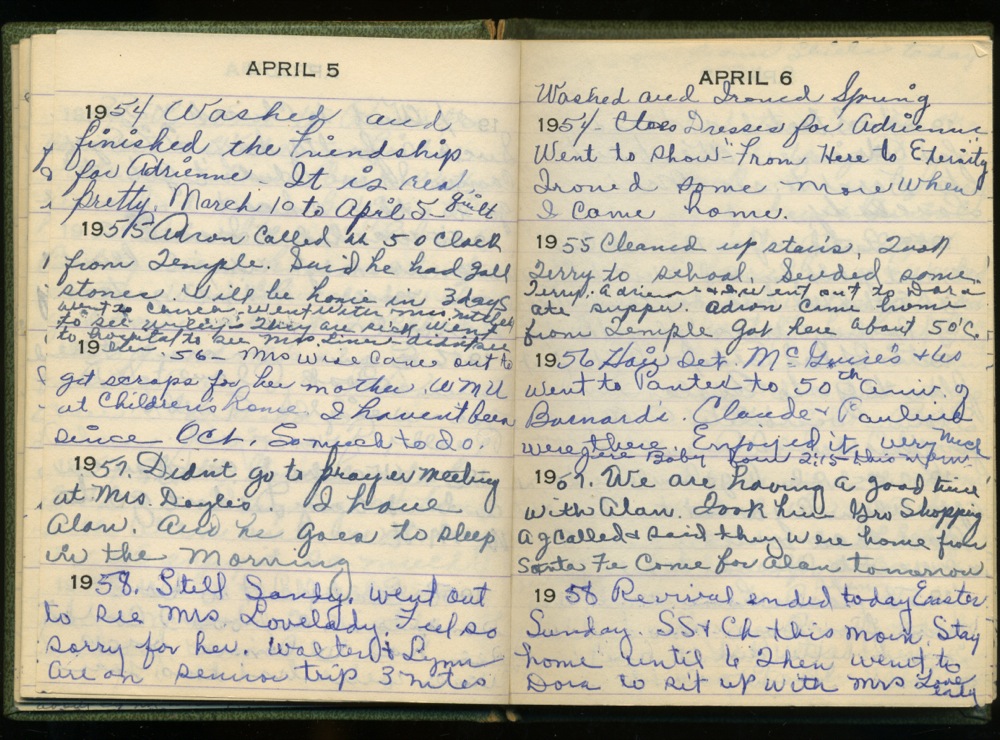 APRIL 5
1954 Washed and
finished the Friendship
for Adrienne. It is real
pretty. March 10 to April 5- quilt
1955 Aaron called at 5 o Clock
from Temple. Said he had gall
stones. Will be home in 3 days
went to went with Mrs.
to see They are sick. Went
to hospital to see Mrs. didn't see
her. 1956- Mrs Wise came out to
get scraps for her mother. WMU
at Children's home. I havent been
since Oct. So much to do.
1957. Didn't go to prayer meeting
at Mrs. Doyle's. I have
Alan. And he goes to sleep
in the Morning
1958. Still Sandy. Went out
to see Mrs. Lovelady. Feel so
sorry for her. Walter & Lynn
are on senior trip 3 nites
APRIL 6
Washed and Ironed Spring
1954- Dresses for Adrienne
Went to show "From Here to Eternity
Ironed some more When
I came home.
1955 Cleaned up stairs, Took
Terry to school. Seeded some
Terry. Adrienne & I went out to Dora
ate supper. Adron came home
from Temple got here about 5 O'C.
1956 Hair Set. Mc Guire's & us
went to Pantex to 50th Aniv. of
Barnard's. Claude & Pauline
were there. Enjoyed it very Much
Baby born 2:15 this morn.
1957. We are having a good time
with Alan. Took him Gro Shopping
A J called & said they were home from
Santa Fe Come for Alan tomorrow
1958 Revival ended today Easter
Sunday. SS & Ch this morn Stay
home until 6 Then went to
Dora to sit up with Mrs Lovelady